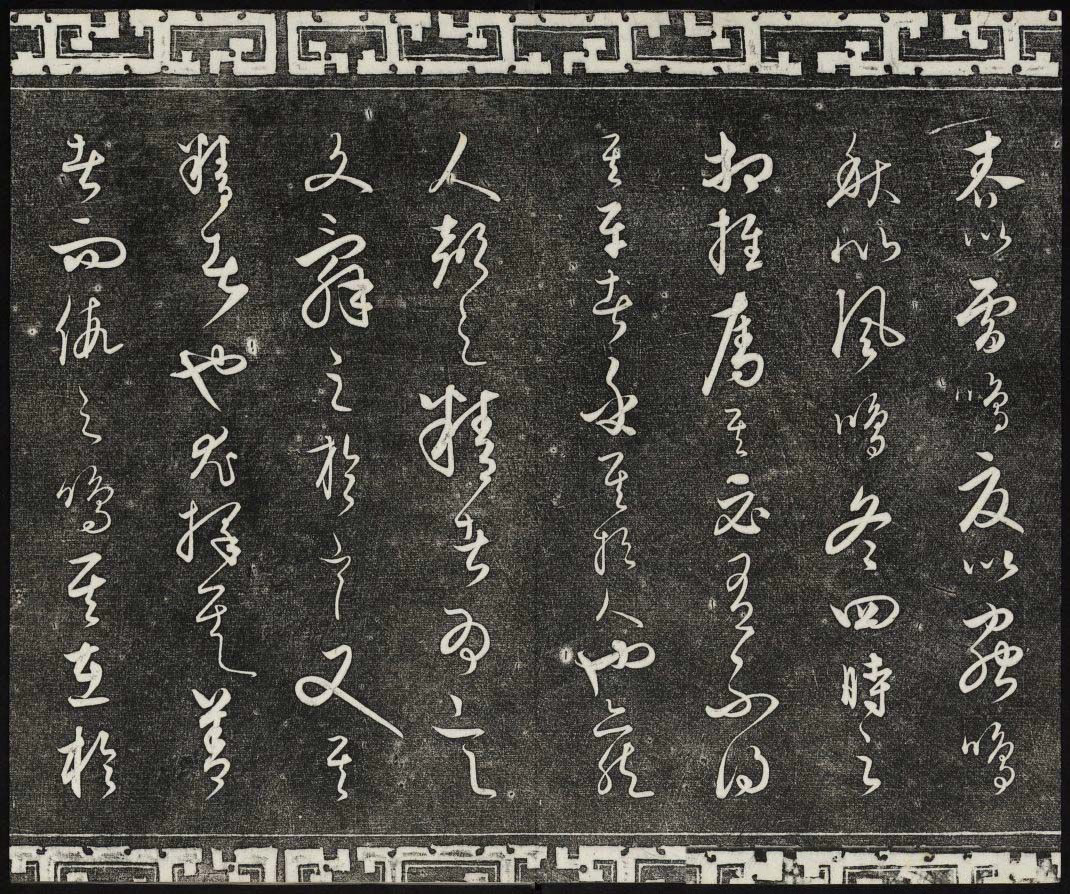 春以雷鳴夏以蟲鳴
秋以風鳴冬四時之
相推奪其必有不得
其平者乎其於人也亦然
人聲之精者為言
文辭之於言又其
精者也尤擇其善
者而假之鳴其在於